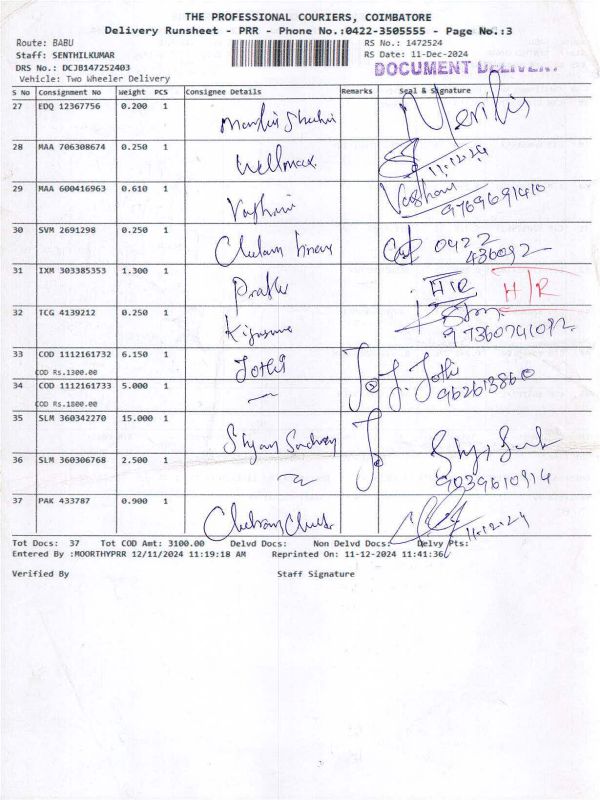 THE PROFESSIONAL COURIERS, COIMBATORE
Delivery Runsheet - PRR - Phone No.:0422-3505555 - Page No.:3
Route: BABU RS No.: 1472524
Staff: SENTHILKUMAR RS Date: 11-Dec-2024
DRS No.: DCJB147252403 DOCUMENT
Vehicle: Two Wheeler Delivery
S No Consignment No Weight PCS Consignee Details Remarks Seal & Signature
27 EDQ 12367756 0.200 1
28 MAA 706308674 0.250 1 Wellmax 11.12.24
29 MAA 600416963 0.610 1 9769691410
30 SVM 2691298 0.250 1 0422
436092
31 IXM 303385353 1.300 1 H/R H/R
32 TCG 4139212 0.250 1
33 COD 1112161732 6.150 1 Jothi J. Jothi
COD Rs.1300.00
34 COD 1112161733 5.000 1
COD Rs.1800.00
35 SLM 360342270 15.000 1
36 SLM 360306768 2.500 1
37 PAK 433787 0.900 1 11.12.24
Tot Docs: 37 Tot COD Amt: 3100.00 Delvd Docs: Non Delvd Docs: Delvy Pts:
Entered By :MOORTHYPRR 12/11/2024 11:19:18 AM Reprinted On: 11-12-2024 11:41:36
Verified By Staff Signature